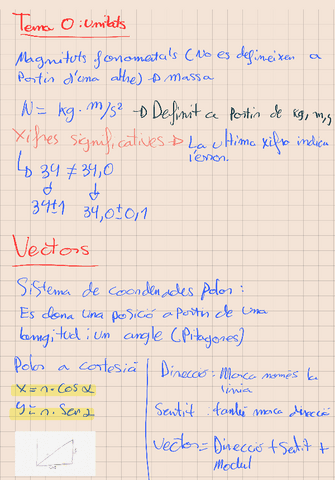 Tema 0: unitats
Magnituts fonamentals (No es defineixen a
Partir d'una altre) → massa
N = kg · m/s² → Definit a partir de kg, m, s
Xifres significatives → La ultima xifra indica
l'error.
↳ 34 ≠ 34,0
34±1 34,0±0,1
Vectors
Sistema de coordenades Polar:
Es dona una posició a Partir de una
longitud i un angle (Pitagores)
Polar a cartesià
x = r · cos α
y = r · sen α
Direcció: Marca només la
línia
Sentit: també marca direcció
Vector = Direcció + Sentit +
Modul